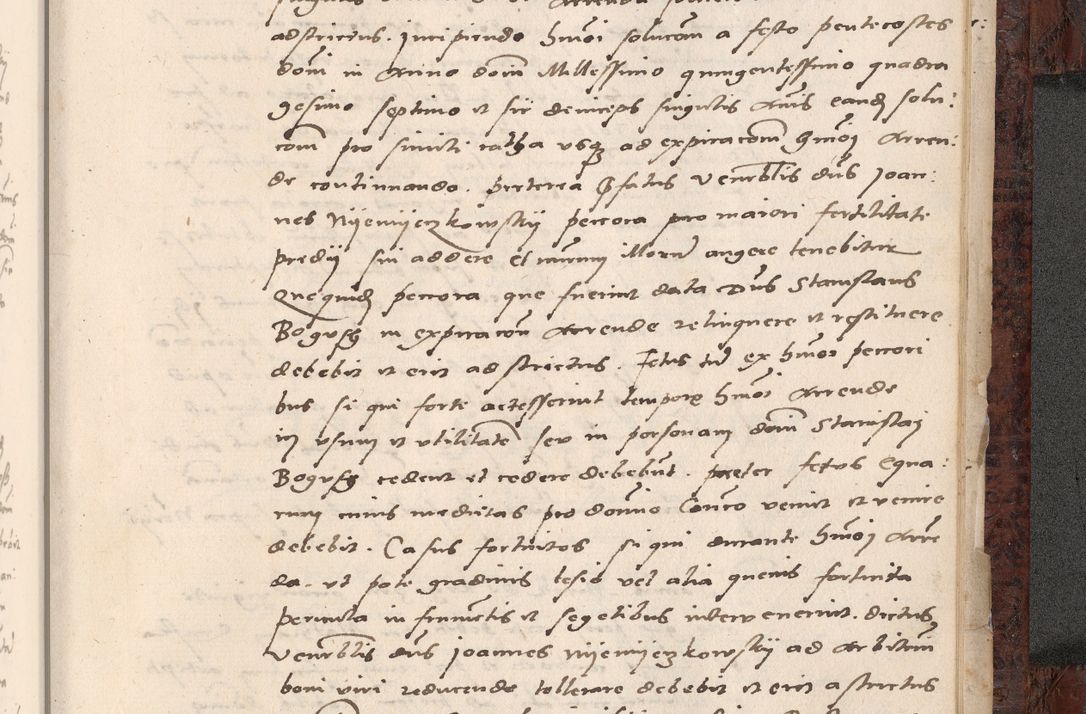 adstrictus. Incipiendo hmoi solucom a festo pentecostes
domi in Anno domi Millessimo quingentessimo quadra
gesimo septimo et sic deinceps singulis Annis eand solu:
com pro simili ratha vsq ad expiracom hmoi Arren:
de continuando. preterea pfatus Venerblis dns Joan:
nes Nyemyeczkowskij peccora pro maiori fertilitate
predij sui addere et numm illorum augere tenebitur
Quequid peccora que fuerint data Dns Stanislaus
Bogusz in expiracom Arrende relinquere et restituere
debebit et erit adstrictus. Fetus tn ex hmoi peccori
bus si qui forte accesserint tempore hmoi Arrende
in vsum et vtilitate seu in personam domi Stanislaj
Bogusz cedent et cedere debebunt. preter fetus Equa:
rum cuius medietas pro domino Conco veniet et venire
debebit. Casus fortuitos si qui durante hmoi Arre
da. vt pote grandinis lesio vel alia quevis fortuita
pericula in frumentis et segetibus intervenerint. dictus
Venerblis dns Joannes Nyemyeczkowskij ad Arbitrium
boni viri reducendo tollerare debebit et erit astrictus